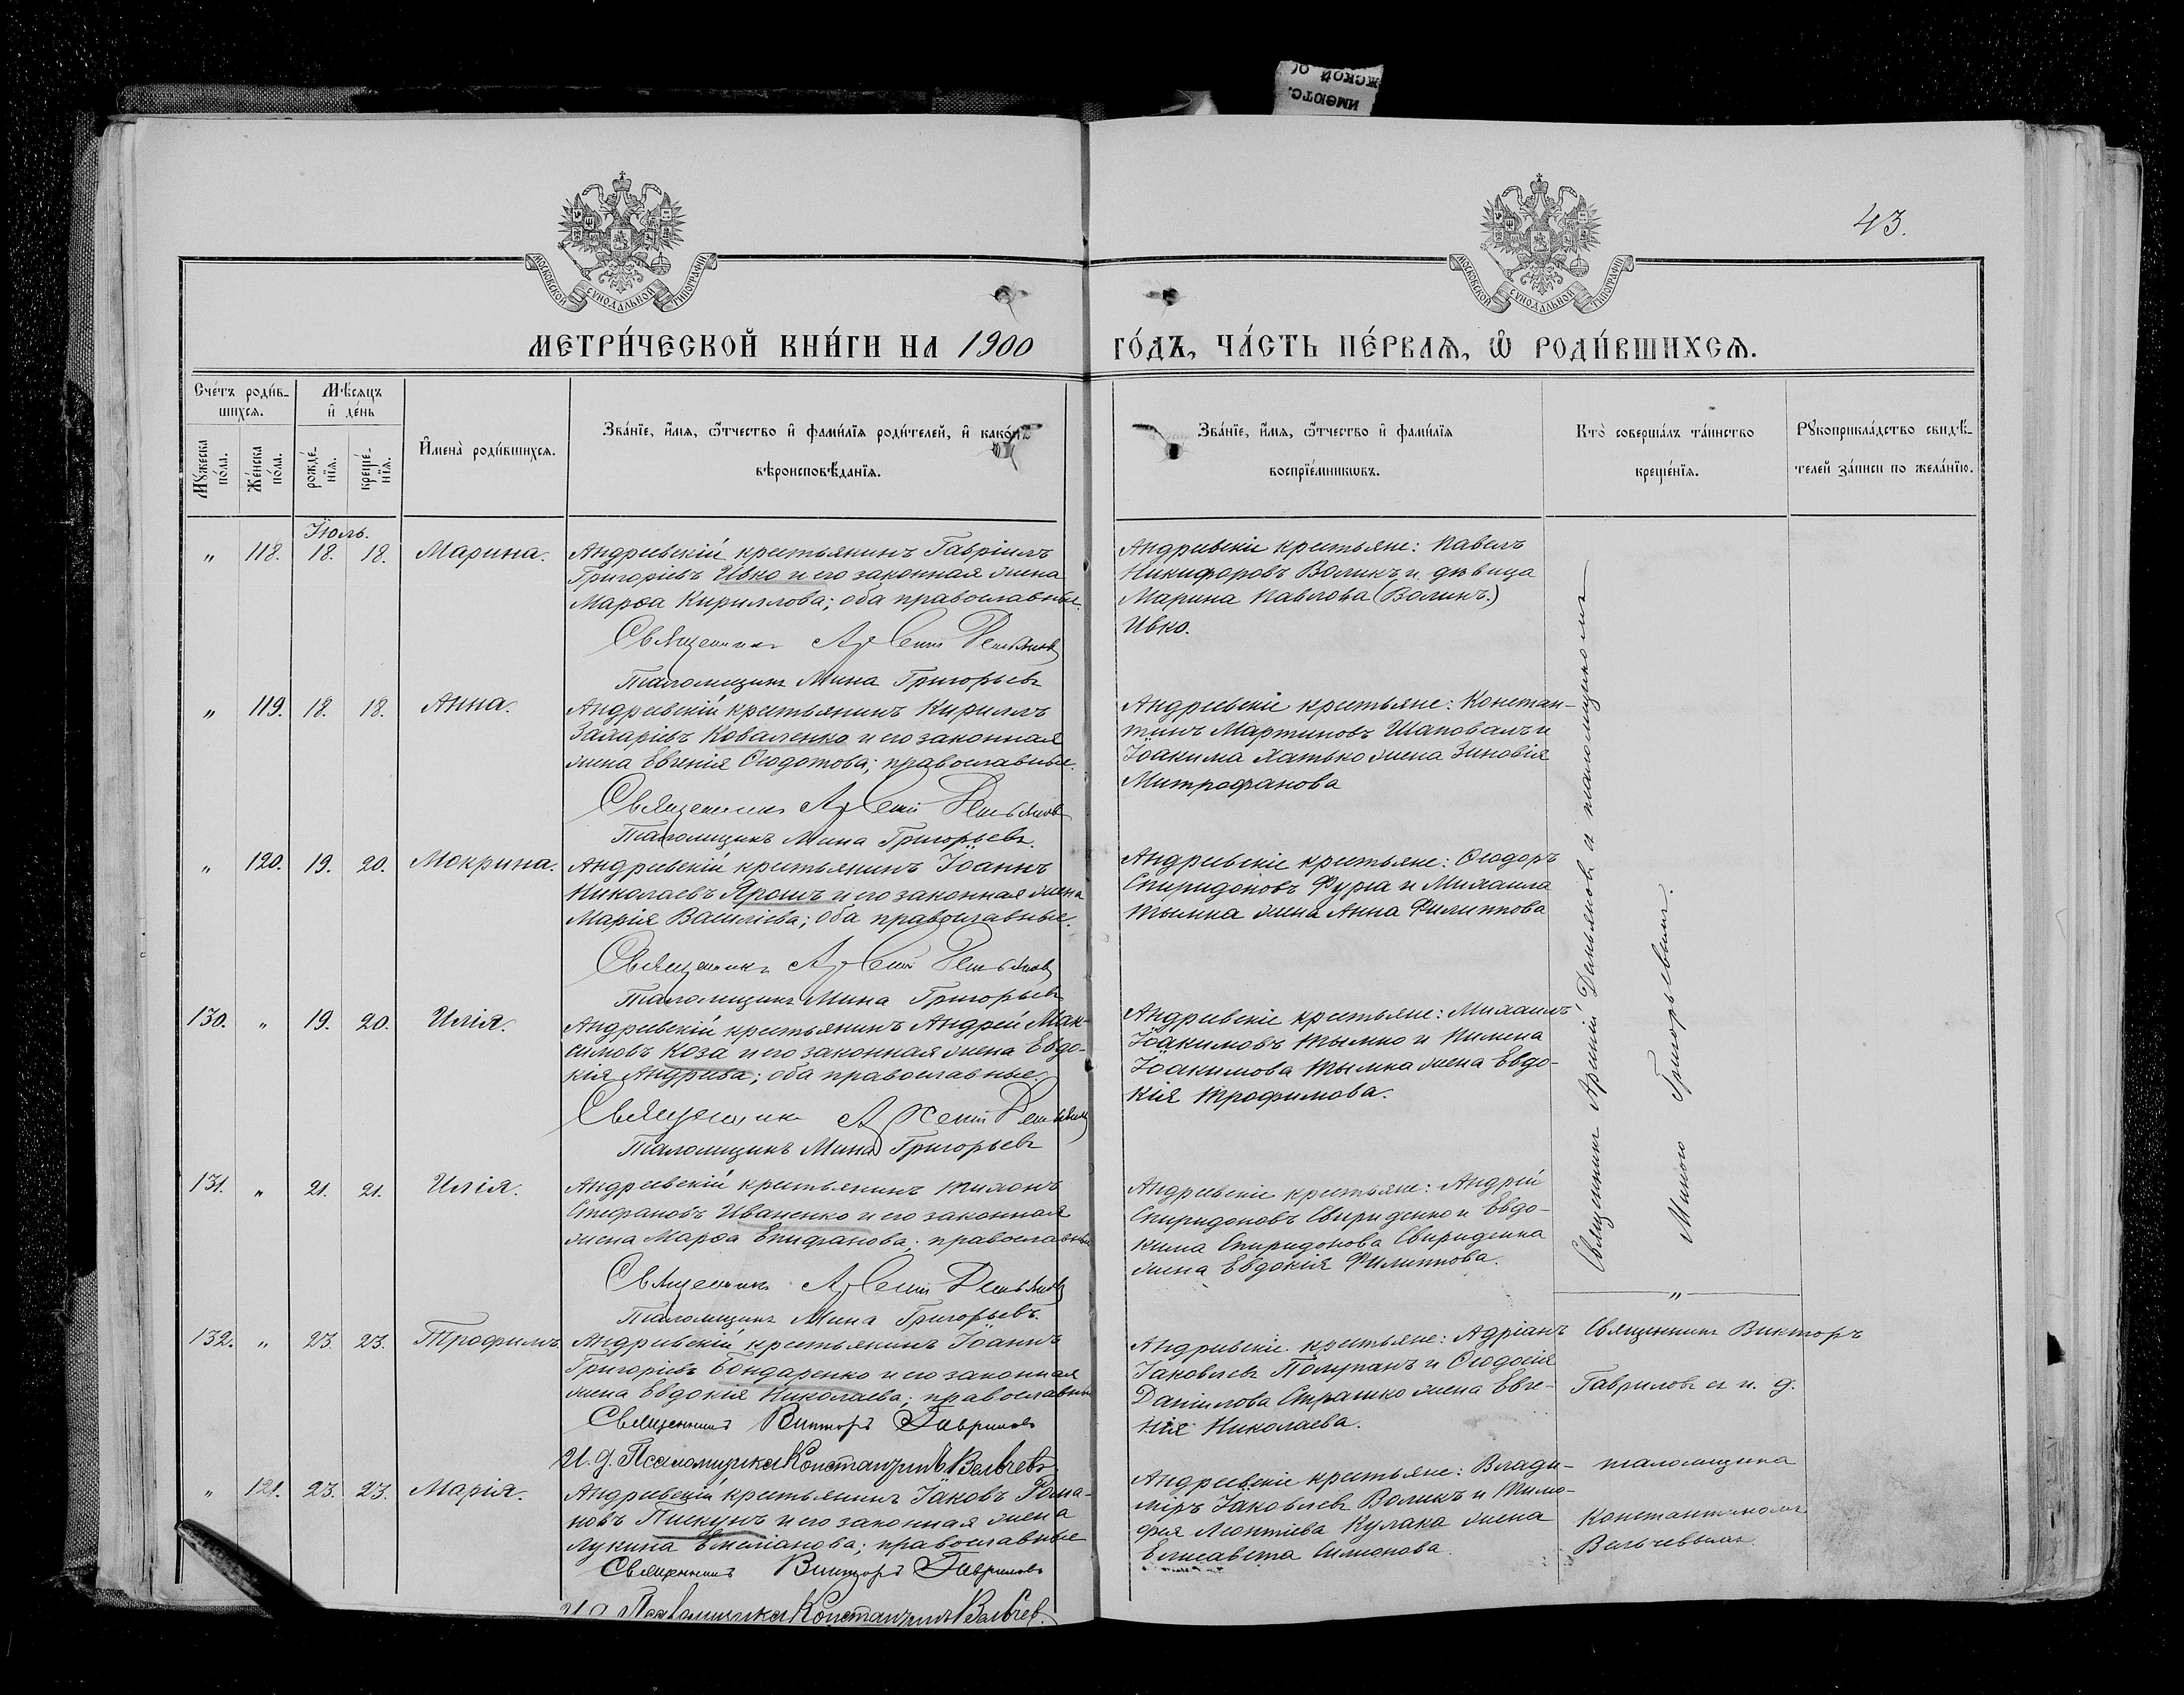 ЖСКОЙ
ИМѢЮТС.
43.
МОСКОВСКОЙ СѴНОДАЛЬНОЙ ТИПОГРАФІИ
МОСКОВСКОЙ СѴНОДАЛЬНОЙ ТИПОГРАФІИ
МЕТРИ́ЧЕСКОЙ КНИ́ГИ НА 1900 ГО́ДЪ, ЧА́СТЬ ПЕ́РВАѦ, Ѡ РОДИ́ВШИХСѦ.
Сче́тъ роди́в-
шихсѧ.
Мѣ́сѧцъ
и҆ де́нь
Мꙋ́жеска
по́ла.
Же́нска
по́ла.
рожде́-
нїѧ.
креще́-
нїѧ.
И҆мена̀ роди́вшихсѧ.
Зва́нїе, и҆́мѧ, ѻ҆́тчество и҆ фами́лїѧ роди́телей, и҆ како́гѡ
вѣроисповѣ́данїѧ.
Зва́нїе, и҆́мѧ, ѻ҆́тчество и҆ фами́лїѧ
воспрїе́мникѡвъ.
Кто̀ соверша́лъ та́инство
креще́нїѧ.
Рꙋкоприкла́дство свидѣ́-
телей за́писи по жела́нїю.
Іюль.
" 118. 18. 18. Марина.
Андреевскій крестьянинъ Гавріилъ
Григоріевъ Ивко и его законная жена
Марѳа Кириллова; оба православные.
Священникъ Арсеній Демьяновъ
Псаломщикъ Мина Григорьевъ
Андреевскіе крестьяне: Павелъ
Никифоровъ Воликъ и дѣвица
Марина Павлова (Воликъ.)
Ивко.
" 119. 18. 18. Анна.
Андреевскій крестьянинъ Кириллъ
Захаріевъ Коваленко и его законная
жена Евгенія Ѳеодотова; православные.
Священникъ Арсеній Демьяновъ
Псаломщикъ Мина Григорьевъ.
Андреевскіе крестьяне: Констан-
тинъ Мартиновъ Шаповалъ и
Іоакима Хатько жена Зиновія
Митрофанова
" 120. 19. 20. Мокрина.
Андреевскій крестьянинъ Іоаннъ
Николаевъ Ярошъ и его законная жена
Марія Василіева; оба православные.
Священникъ Арсеній Демьяновъ
Псаломщикъ Мина Григорьевъ
Андреевскіе крестьяне: Ѳеодоръ
Спиридоновъ Фурса и Михаила
Тымка жена Анна Филиппова
130. " 19. 20. Илія.
Андреевскій крестьянинъ Андрей Мак-
симовъ Коза и его законная жена Евдо-
кія Андреева; оба православные.
Священникъ Арсеній Демьяновъ
Псаломщикъ Мина Григорьевъ
Андреевскіе крестьяне: Михаилъ
Іоакимовъ Тымко и Пимена
Іоакимова Тымка жена Евдо-
кія Трофимова.
131. " 21. 21. Илія.
Андреевскій крестьянинъ Тихонъ
Стефановъ Иваненко и его законная
жена Марѳа Епифанова; православные
Священникъ Арсеній Демьяновъ
Псаломщикъ Мина Григорьевъ.
Андреевскіе крестьяне: Андрей
Спиридоновъ Свириденко и Евдо-
кима Спиридонова Свириденка
жена Евдокія Филиппова.
Священникъ Арсеній Демьяновъ и псаломщикомъ
Миною Григорьевымъ.
"
132. " 23. 23. Трофимъ.
Андреевскій крестьянинъ Іоаннъ
Григоріевъ Бондаренко и его законная
жена Евдокія Николаева; православные
Священникъ Викторъ Гавриловъ
И. д. Псаломщика Константинъ Вельчевъ
Андреевскіе крестьяне: Адріанъ
Іаковлевъ Полупанъ и Ѳеодосія
Даніилова Страшко жена Евге-
нія Николаева.
Священникъ Викторъ
Гавриловъ съ и. д.
псаломщика
Константиномъ
Вельчевымъ.
" 121. 23. 23. Марія.
Андреевскій крестьянинъ Іаковъ Рома-
новъ Пискунъ и его законная жена
Лукина Емеліанова; православные
Священникъ Викторъ Гавриловъ
И. д. Псаломщика Константинъ Вельчев.
Андреевскіе крестьяне: Влади-
міръ Іаковлевъ Воликъ и Тимо-
фея Леонтіева Кулака жена
Елисавета Симонова.